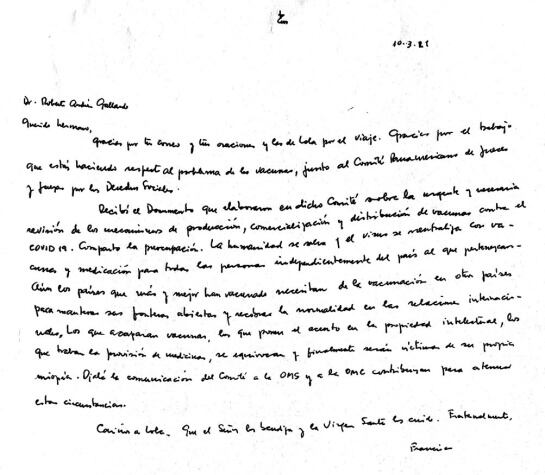 10.3.21
Dr. Roberto Andrés Gallardo
Querido hermano,
Gracias por tu correo y tus oraciones y las de Lola por el viaje. Gracias por el trabajo
que estás haciendo respecto al problema de las vacunas, junto al Comité Panamericano de Jueces
y Juezas por los Derechos Sociales.
Recibí el Documento que elaboraron en dicho Comité sobre la urgente y necesaria
revisión de los mecanismos de producción, comercialización y distribución de vacunas contra el
COVID 19. Comparto la preocupación. La humanidad se salva y el virus se neutraliza con va-
cunas y medicación para todas las personas independientemente del país al que pertenezcan.
Aún los países que más y mejor han vacunado necesitan de la vacunación en otros países
para mantener sus fronteras abiertas y recobrar la normalidad en las relaciones internacio-
nales. Los que acaparan vacunas, los que ponen el acento en la propiedad intelectual, los
que traban la provisión de medicinas, se equivocan y finalmente serán víctimas de su propia
miopía. Ojalá la comunicación del Comité a la OMS y a la OMC contribuyan para atender
estas circunstancias.
Cariños a Lola. Que el Señor los bendiga y la Virgen Santa los cuide. Fraternalmente,
Francisco